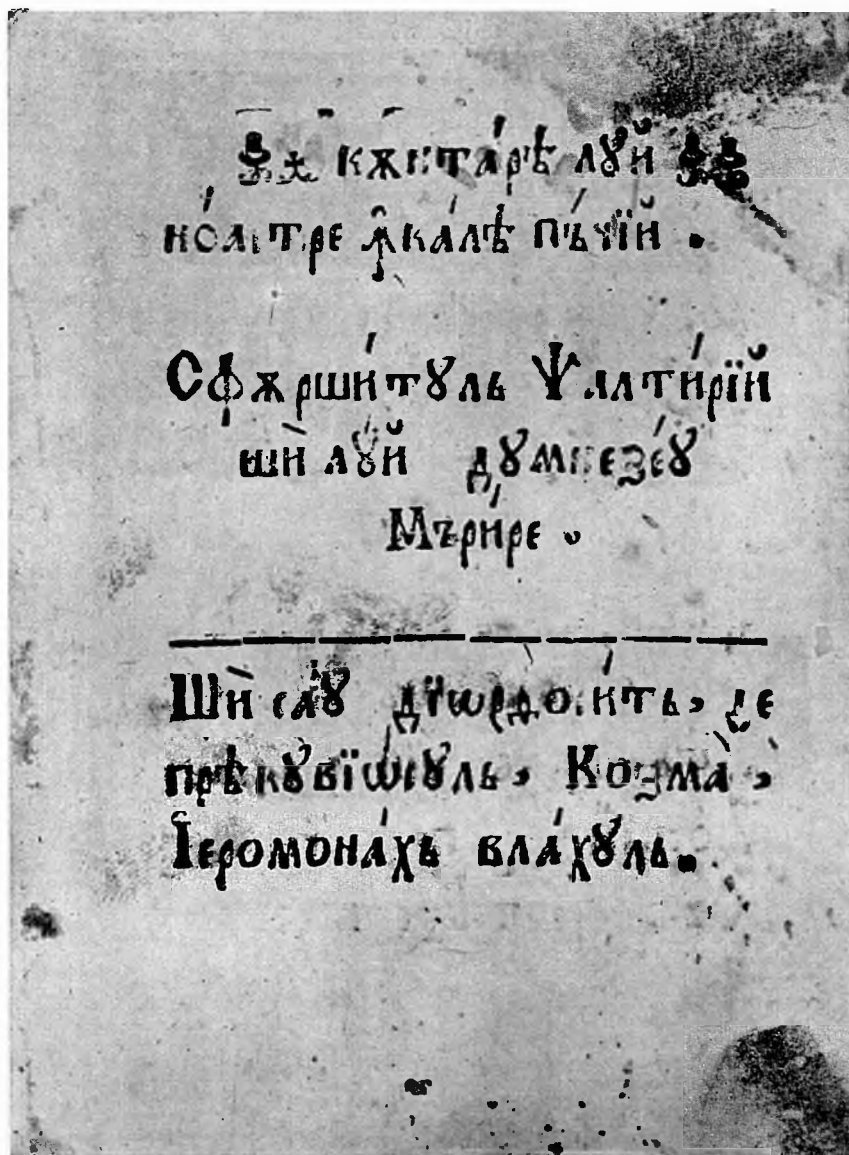 кѫнта́рѣ лꙋй
но́астре ꙟка́лѣ пъ́чїй .
Сфѫрши́тꙋль Ѱалти́рїй
шѝ лꙋ́й дꙋмнезе́ꙋ
Мъри́ре .
Шѝ са́ꙋ дїѡрдоси́ть, де
прѣкꙋвїѡ́сꙋль, Козма̀,
Іеромона́хь вла́хꙋль.